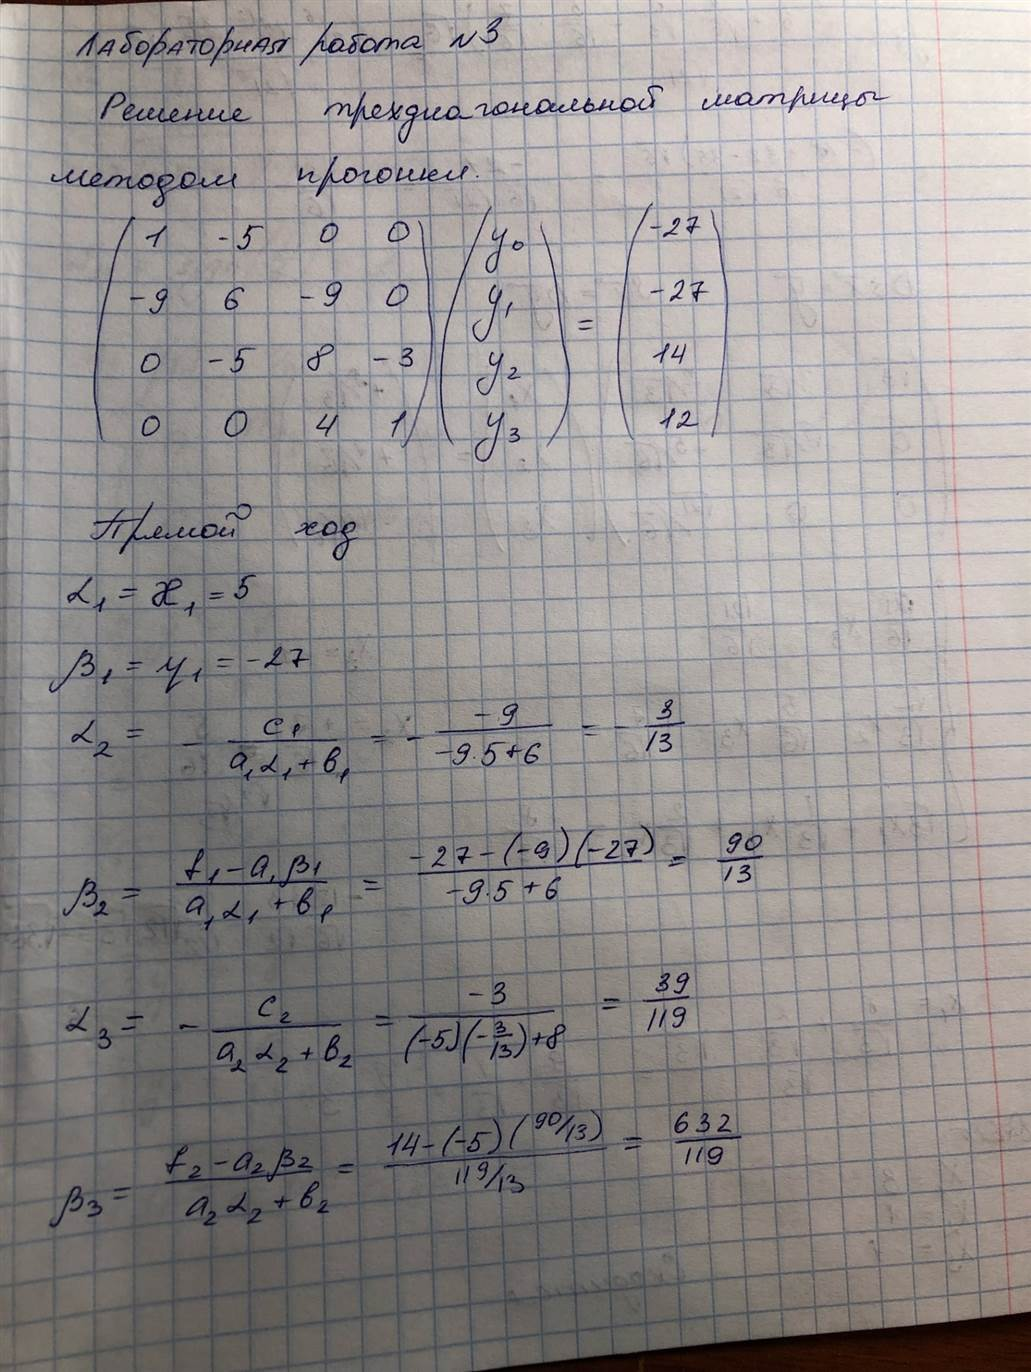 Лабораторная работа №3
Решение трехдиагональной матрицы
методом прогонки.
( 1 -5 0 0 ) ( y₀ ) ( -27 )
( -9 6 -9 0 ) ( y₁ ) = ( -27 )
( 0 -5 8 -3 ) ( y₂ ) ( 14 )
( 0 0 4 1 ) ( y₃ ) ( 12 )
Прямой ход
α₁ = æ₁ = 5
β₁ = γ₁ = -27
α₂ = - c₁/(a₁α₁ + b₁) = - -9/(-9·5+6) = - 3/13
β₂ = (f₁ - a₁β₁)/(a₁α₁ + b₁) = (-27-(-9)(-27))/(-9·5+6) = 90/13
α₃ = - c₂/(a₂α₂ + b₂) = -3/((-5)(-3/13)+8) = 39/119
β₃ = (f₂ - a₂β₂)/(a₂α₂ + b₂) = (14-(-5)(90/13))/(119/13) = 632/119